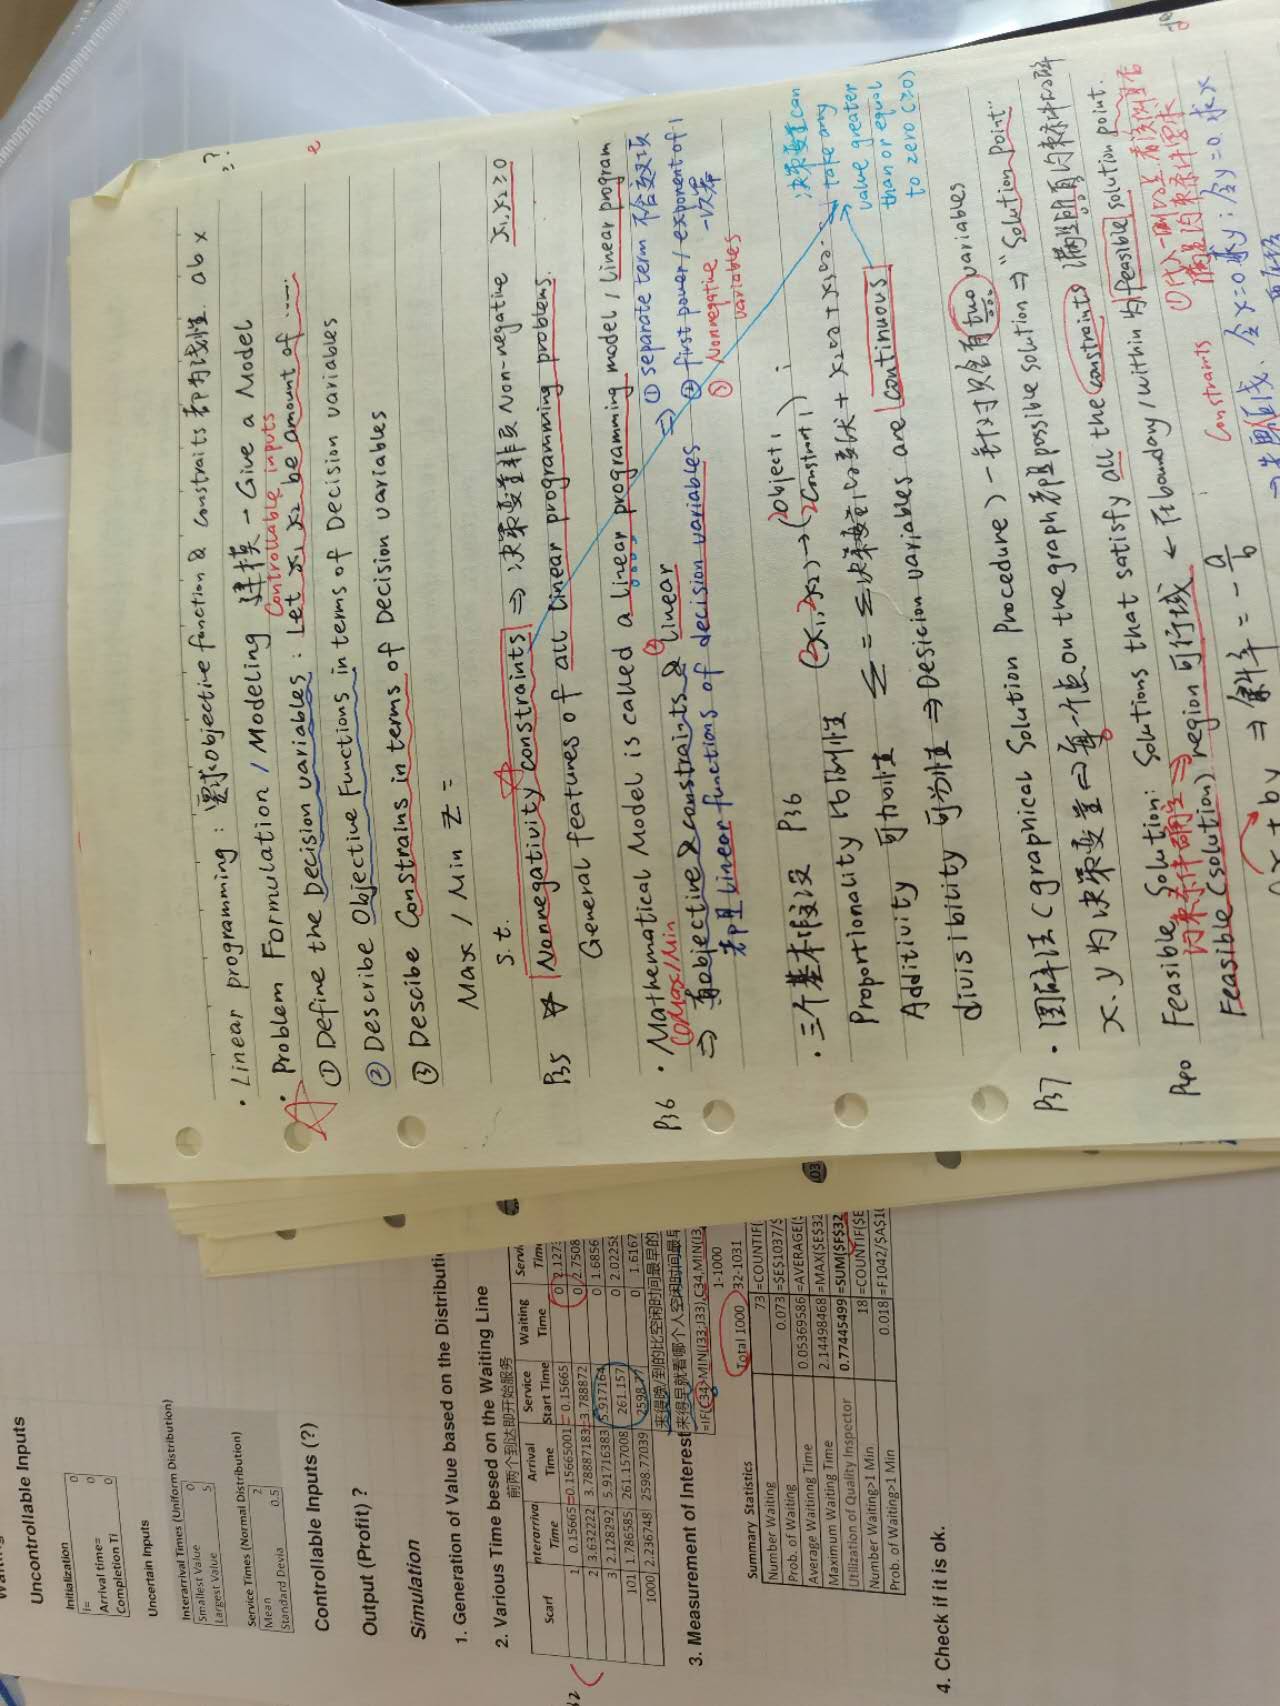 ·Linear programming：要求objective function & constraits 都为线性. ab x
·Problem Formulation / Modeling 建模 - Give a Model
Controllable inputs
① Define the Decision variables：Let x₁ x₂ be amount of ......
② Describe Objective Functions in terms of Decision variables
③ Descibe Constrains in terms of Decision variables
Max / Min Z =
s.t.
P35 Nonnegativity constraints ⇒ 决策变量非负 Non-negative x₁,x₂≥0
General features of all linear programming problems.
P36 ·Mathematical Model is called a linear programming model / linear program
①Max/Min
⇒ 有objective & constraints ② Linear
都是Linear functions of decision variables
⇒ ① separate term 不含交叉项
② first power / exponent of 1 一次幂
③ Nonnegative variables
·三个基本假设 P36
Proportionality 比例性 (x₁, x₂) → (2object,
2Constrain1)
Additivity 可加性
divisibility 可分性 ⇒ Desicion variables are continuous
决策变量can
take any
value greater
than or equal
to zero (≥0)
P37 ·图解法 (graphical Solution Procedure) - 针对只含有two variables
x.y为决策变量 ⇒ 每一个点on the graph都是possible solution ⇒ "Solution Point"
P40 Feasible Solution: Solutions that satisfy all the constraints 满足所有约束条件的解
约束条件确定 ⇒
Feasible (solution) region 可行域 ← 在boundary/within 为feasible solution point.
Constrants
令x=0求y；令y=0.求x
⇒ 斜率 = -a/b
Uncontrollable Inputs
Initialization 0
i= 0
Arrival time= 0
Completion Ti 0
Uncertain Inputs
Interarrival Times (Uniform Distribution)
Smallest Value 0
Largest Value 5
Service Times (Normal Distribution)
Mean 2
Standard Devia 0.5
Controllable Inputs (?)
Output (Profit) ?
Simulation
1. Generation of Value based on the Distributi
2. Various Time besed on the Waiting Line
前两个到达即开始服务
Scarf nterarriva Time Arrival Time Service Start Time Waiting Time Servi Time
1 0.15665 0.15665001 0.15665 0 2.127
2 3.632222 3.78887183 3.788872 0 2.7508
3 2.128292 5.91716383 5.917164 0 1.6856
101 1.786585 261.157008 261.157 0 2.0225
1000 2.236748 2598.77039 2598.77 0 1.6167
来得晚/到的比空闲时间最早的
来得早就看哪个人空闲时间最早
3. Measurement of Interest
=IF(C34>MIN(I33:J33),C34,MIN(I3
Total 1000 1-1000
32-1031
Summary Statistics
Number Waiting 73 =COUNTIF(
Prob. of Waiting 0.073 =$E$1037/$
Average Waitinng Time 0.05369586 =AVERAGE($
Maximum Waiting Time 2.14498468 =MAX($E$32
Utilization of Quality Inspector 0.77445499 =SUM($F$32
Number Waiting>1 Min 18 =COUNTIF($E
Prob. of Waiting>1 Min 0.018 =F1042/$A$1
4. Check if it is ok.